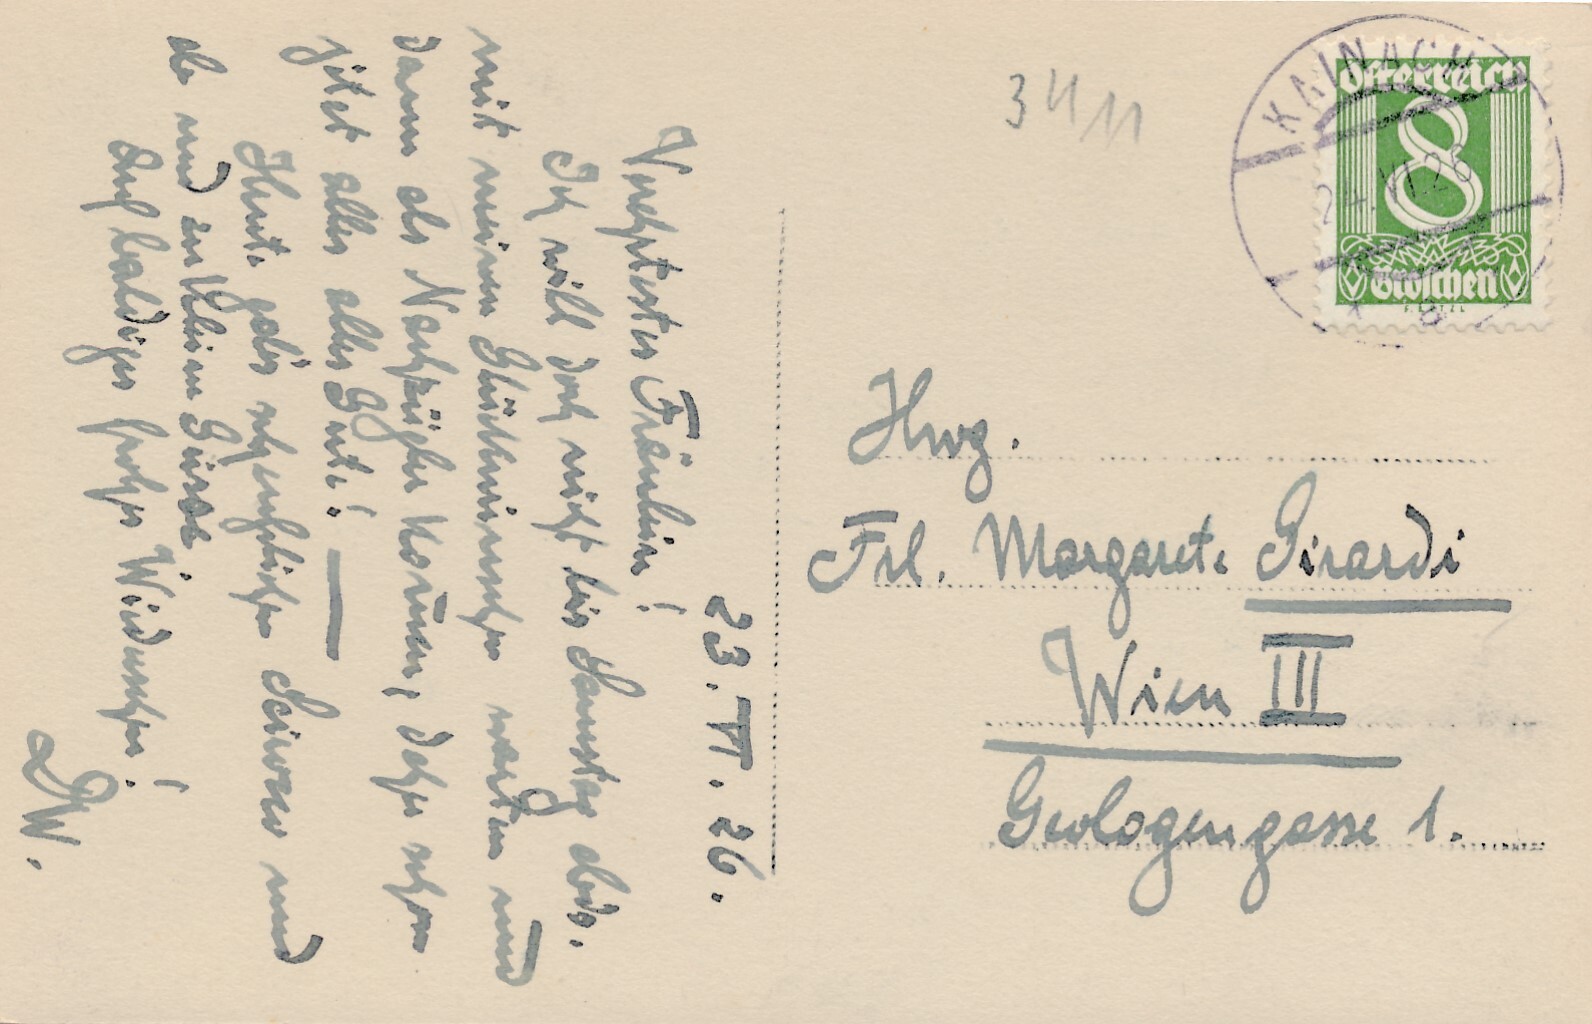 23. VI. 26.
Verehrtestes Fräulein!
Ich will doch nicht bis Samstag abds.
mit meinen Glückwünschen warten und
dann als Nachzügler kom̅en, daher schon
jetzt alles alles Gute! —
Heute gab's schreckliche und
ab und zu kleine
Auf baldiges frohes Wiedersehen!
DW.
3411
KAINACH
24.VI.26
Österreich
8
Groschen
Hwg.
Frl. Margarete Girardi
Wien III
Geologengasse 1.